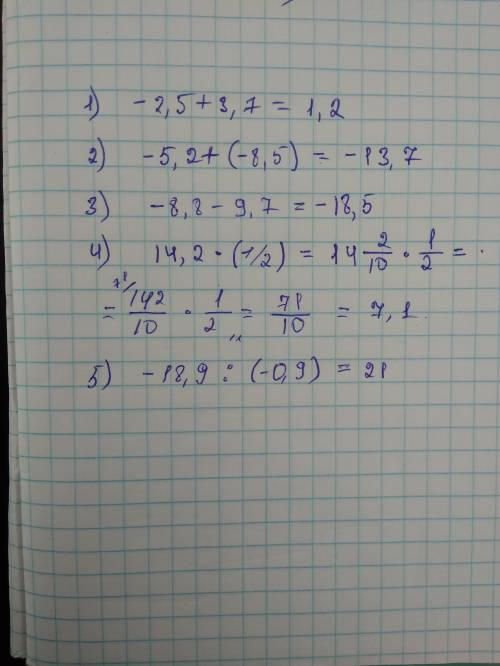 1) -2,5+3,7 = 1,2
2) -5,2+(-8,5) = -13,7
3) -8,8-9,7 = -18,5
4) 14,2 · (1/2) = 14 2/10 · 1/2 =
= 71 142/10 · 1/2 = 71/10 = 7,1
5) -18,9 : (-0,9) = 21